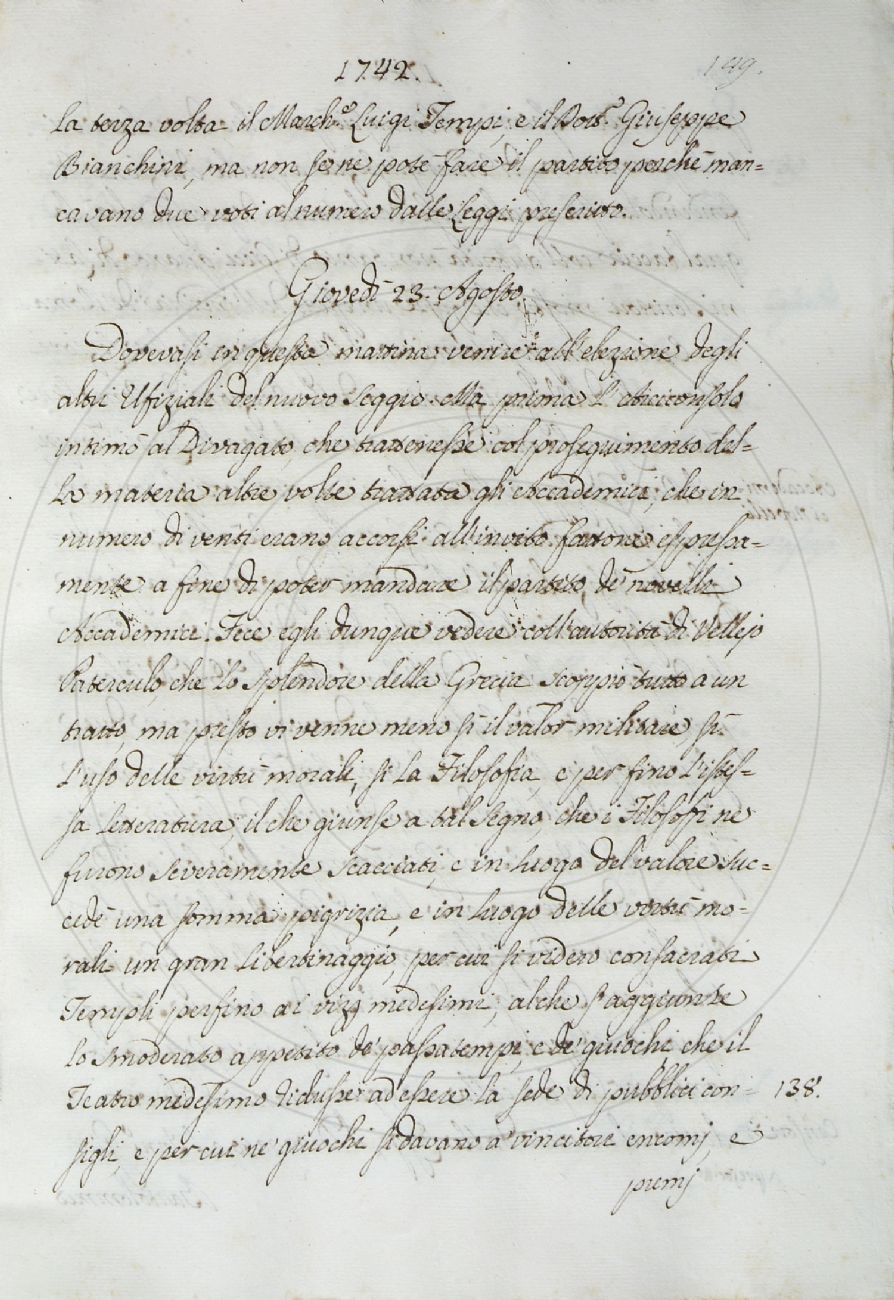 1742.
149.
la terza volta il March.e Luigi Tempi, e il Dott.e Giuseppe
Bianchini, ma non se ne potè fare il partito perchè man=
cavano due voti al numero dalle Leggi prescritto.
Giovedì 23. Agosto.
Dovevasi in questa mattina venire all'elezione degli
altri Ufiziali del nuovo Seggio. Ma prima l'Arciconsolo
intimò al Divagato, che trattenesse col proseguimento del=
la materia altre volte trattata gli Accademici, che in
numero di venti erano accorsi all'invito fattone espressa=
mente a fine di poter mandare il partito de' novelli
Accademici. Fece egli dunque vedere coll'autorità di Vellejo
Patercolo, che lo splendore della Grecia scoppiò tutto a un
tratto, ma presto vi venne meno sì il valor militare, sì
l'uso delle virtù morali, sì la Filosofia, e per fino l'istes=
sa letteratura, il che giunse a tal segno, che i Filosofi ne
furono severamente scacciati, e in luogo del valore suc=
cedè una somma pigrizia, e in luogo delle virtù mo=
rali un gran libertinaggio, per cui si videro consacrati
Templi perfino ai vizj medesimi, al che s'aggiunse
lo smoderato appetito de' passatempi, e de' giuochi che il
Teatro medesimo ridusse ad essere la sede di pubblici con=
138.
sigli, e per cui ne' giuochi si davano a' vincitori encomj, e
premj